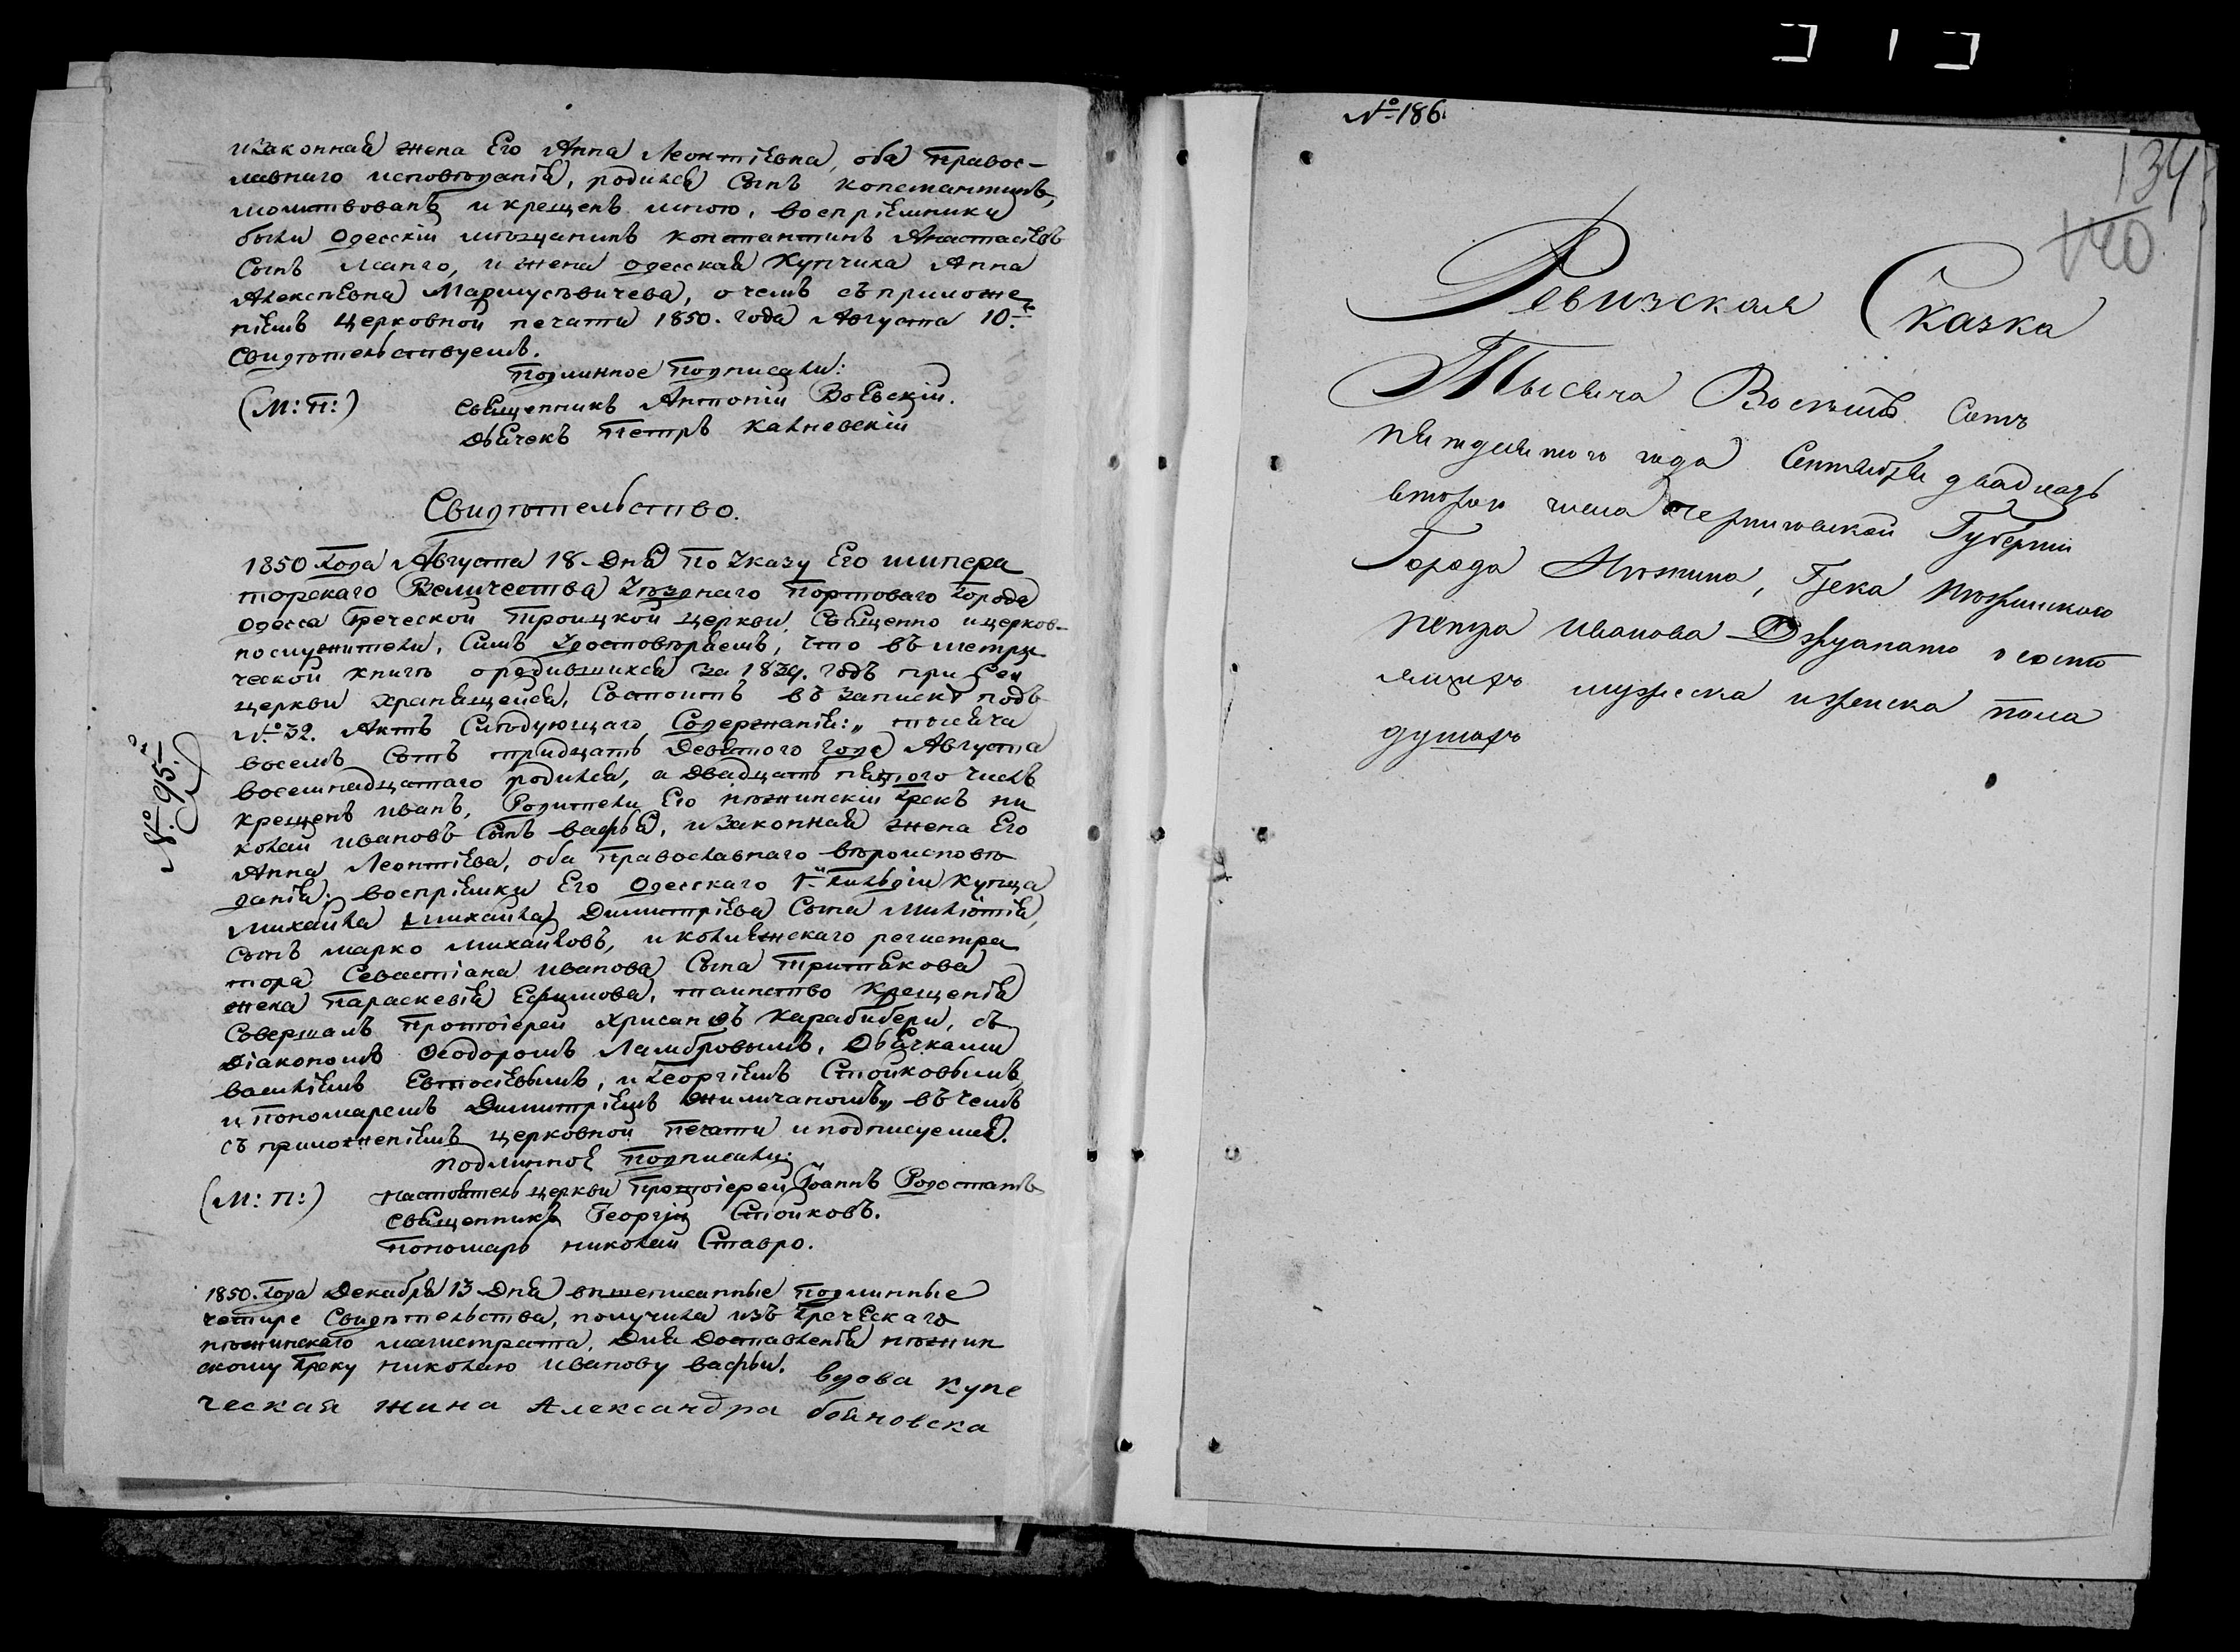 изаконная жена Его Анна Леонтіевна, оба правос-
лавнаго исповѣданія, родился Сынъ константинъ,
молитвованъ и крещенъ мною, воспріемники
были Одесскій мѣщанинъ константинъ Анастасіевъ
Сынъ Манго, и жена одесская Купчиха Анна
Алексѣевна Мармусѣвичева, о чемъ съ приложе
ніемъ церковной печати 1850. года Августа 10.
Свидѣтельствуемъ.
Подлинное Подписали:
(М: П:) священникъ Антоній Воевскій.
дьячекъ Петръ Калневскій
Свидѣтельство.
1850 Года Августа 18 Дня По Указу Его импера
торскаго Величества Уѣзднаго Портоваго Города
Одесса Греческой Троицкой церкви, Священно ицерков-
нослужители, Симъ Удостовѣряемъ, что въ метри
ческой книгѣ ородившихся за 1839. годъ при Сей
церкви хранящейся, Состоитъ въ записке подъ
№ 32. Актъ Слѣдующаго Содержанія: „ тысяча
восемь Сотъ тридцать Девятого Года Августа
восемнадцатаго родился, а двадцать пятого числъ
крещенъ иванъ, Родители Его нѣжинскій Грекъ ни
колай ивановъ Сынъ вафья, изаконная жена Его
Анна Леонтіева, оба Православнаго вѣроисповѣ
данія; воспріемики Его Одесскаго 1-й Гильдіи купца
Михаила Михаила Димитріева Сына Миліотія,
Сынъ марко михайловъ, и колижскаго регистра
тора Севастіана иванова Сына Притякова
жена Параскевія Ефимова, таинство крещенія
Совершалъ Протоіерей Хрисанѳъ Карабибери, съ
діакономъ Ѳеодоромъ Ламбровымъ, Дьячками
василіемъ Евтосіевымъ, и Георгіемъ Стойковымъ,
и Пономаремъ Димитріемъ Жиличаномъ„ въ чемъ
съ приложеніемъ церковной Печати иподписуемся.
Подлинное Подписали:
(М: П:) Настоятель церкви Протоіерей Іоаннъ Родостатъ
священникъ Георгій Стойковъ.
Пономарь николай Ставро.
№ 95.
1850. Года Декабря 13 Дня вышеписанные Подлинные
четире Свидѣтельства, получила изъ Греческаго
нѣжинскаго магистрата, Для Доставленія нѣжин
скому Греку николаю иванову вафьи. вдова купе
ческая жина Александра бояновска
№ 186
134
140
Ревизская Сказка
Тысяча Восемь Сотъ
пятдесятого года Сентября двадцать
второго числа Черниговской Губерніи
Города Нѣжина, Грека Нѣжинского
Петра иванова о состо
ящихъ мужеска иженска пола
душахъ